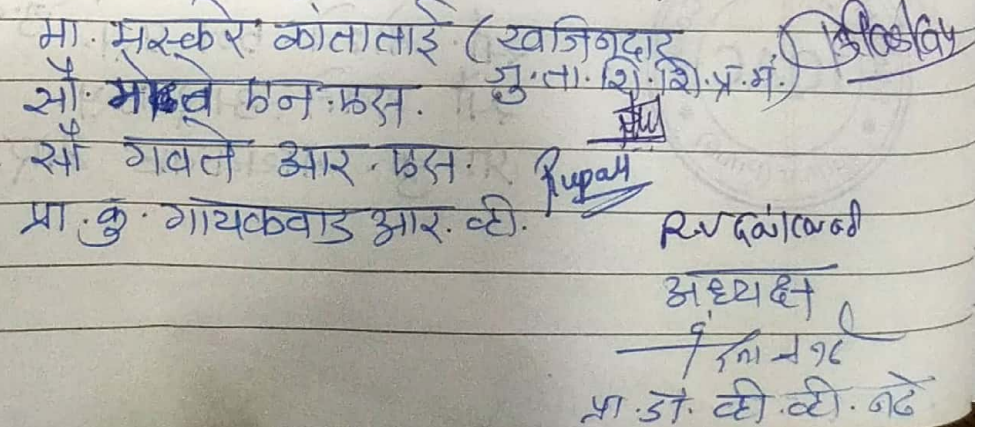 मा. मस्करे कांताताई (खजिनदार
जु.ता.शि.शि.प्र.मं.)
सौ. एन.एस.
सौ गवते आर.एस. Rupali
प्रा.कु. गायकवाड आर.व्ही. R.V Gaikwad
अध्यक्ष
प्रा.डॉ. व्ही.व्ही. नढे